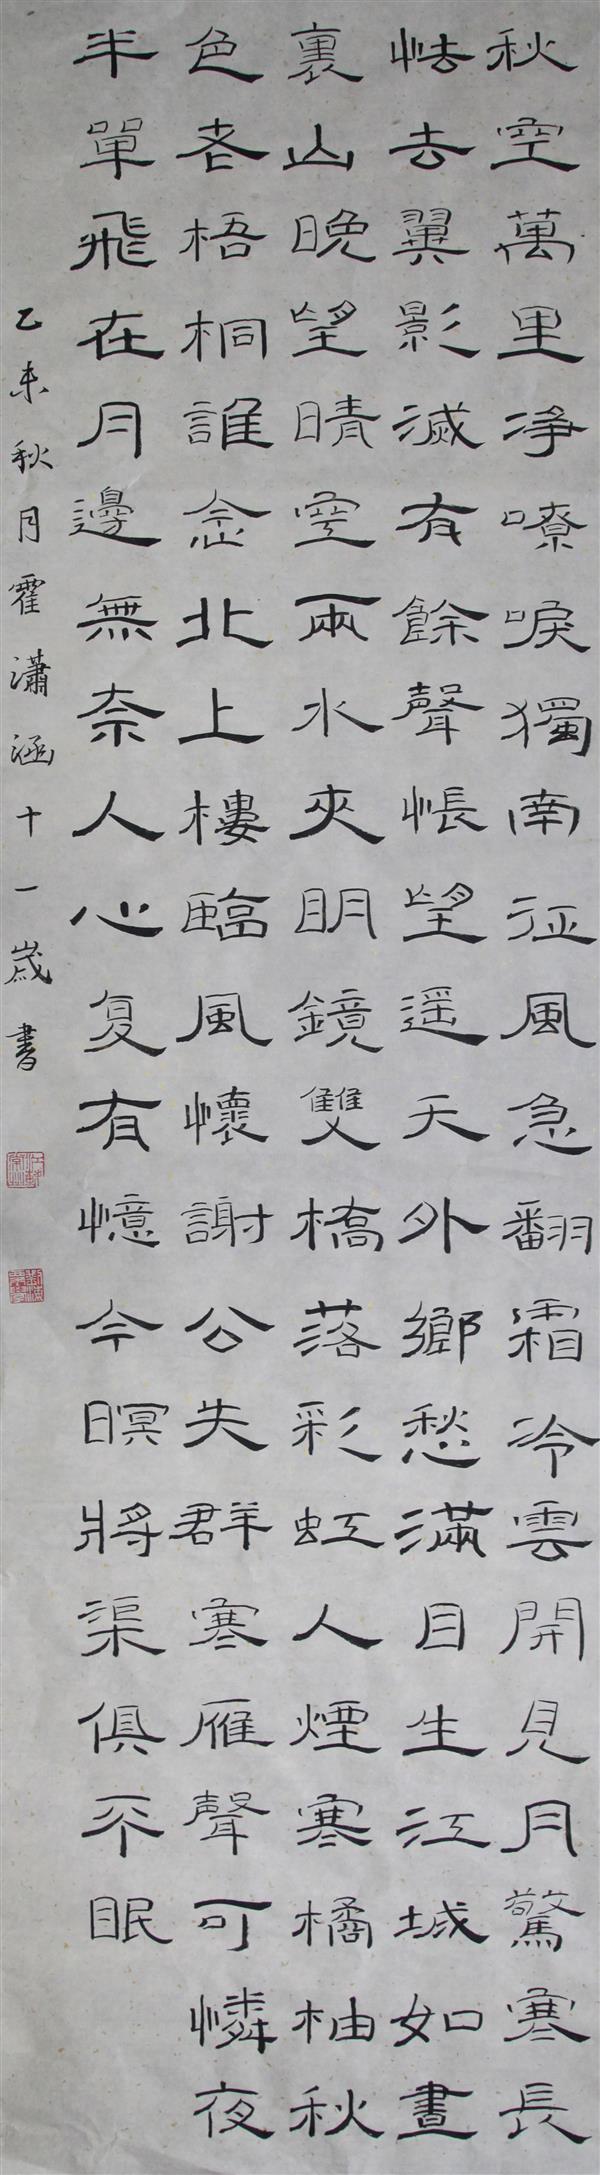 秋空萬里凈嘹唳獨南征風急翻霜冷雲開見月驚寒長
怯去翼影滅有餘聲悵望遥天外鄉愁滿目生江城如畫
裏山晚望晴空兩水夾明鏡雙橋落彩虹人煙寒橘柚秋
色老梧桐誰念北上樓臨風懷謝公失群寒雁聲可憐夜
半單飛在月邊無奈人心复有憶今暝將渠俱不眠
乙未秋月霍瀟涵十一歲書